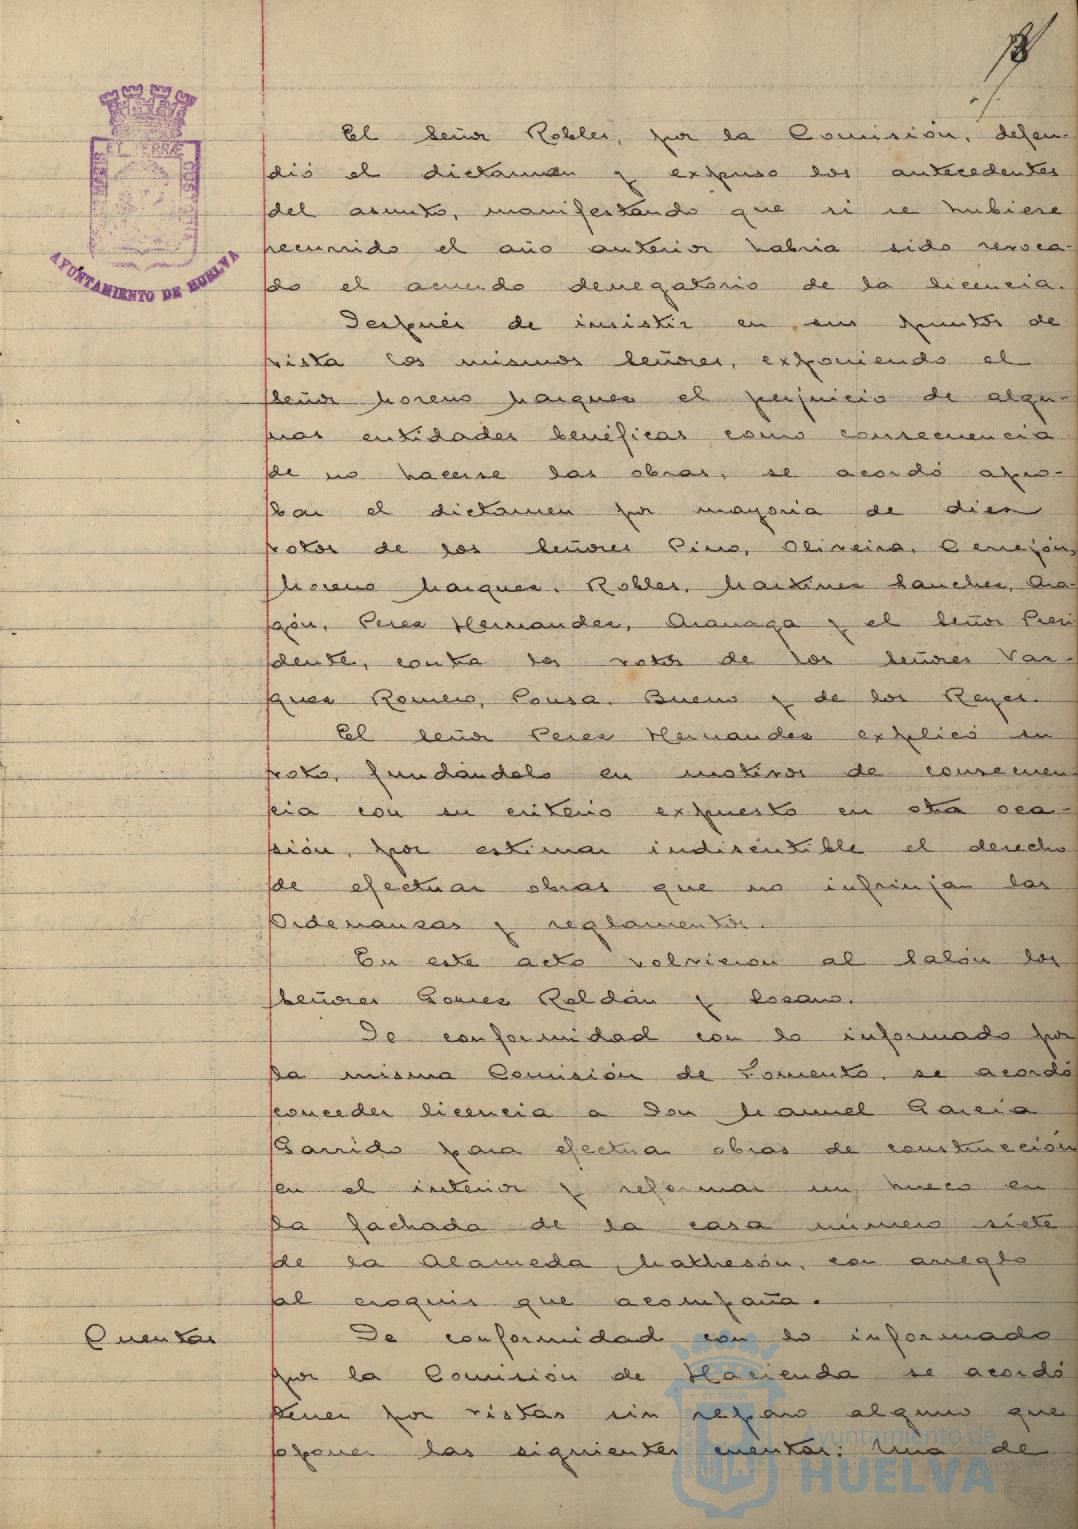 El Señor Robles, por la Comisión, defen-
dió el dictamen y expuso los antecedentes
del asunto, manifestando que si se hubiere
recurrido el año anterior habria sido revoca-
do el acuerdo denegatorio de la licencia.
Después de insistir en sus puntos de
vista los mismos Señores, exponiendo el
Señor Moreno Marques el perjuicio de algu-
nas entidades benéficas como consecuencia
de no hacerse las obras, se acordó apro-
bar el dictamen por mayoria de diez
votos de los Señores Pino, Oliveira, Cerrejón,
Moreno Marquez, Robles, Martinez Sanchez, Ara-
gón, Perez Hernandez, Aranaga y el Señor Presi
dente, contra los votos de los Señores Vaz-
quez Romero, Pousa, Bueno y de los Reyes.
El Señor Perez Hernandez explicó su
voto, fundándolo en motivos de consecuen
cia con su criterio expuesto en otra oca-
sión, por estimar indiscutible el derecho
de efectuar obras que no infrinjan las
Ordenanzas y reglamentos.
En este acto volvieron al Salón los
Señores Gomez Roldán y Lozano.
De conformidad con lo informado por
la misma Comisión de Fomento, se acordó
conceder licencia a Don Manuel García
Garrido para efectuar obras de construcción
en el interior y reformar un hueco en
la fachada de la casa número siete
de la Alameda Mathesón, con arreglo
al croquis que acompaña.
Cuentas
De conformidad con lo informado
por la Comisión de Hacienda se acordó
tener por vistas sin reparo alguno que
oponer las siguientes cuentas: Una de
MARIS
ET TERRÆ
CUSTODIA
AYUNTAMIENTO DE HUELVA
Ayuntamiento de
HUELVA